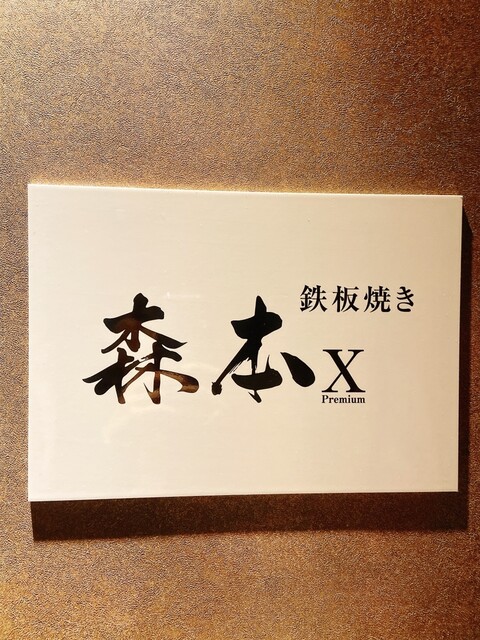 鉄板焼き
森本X
Premium